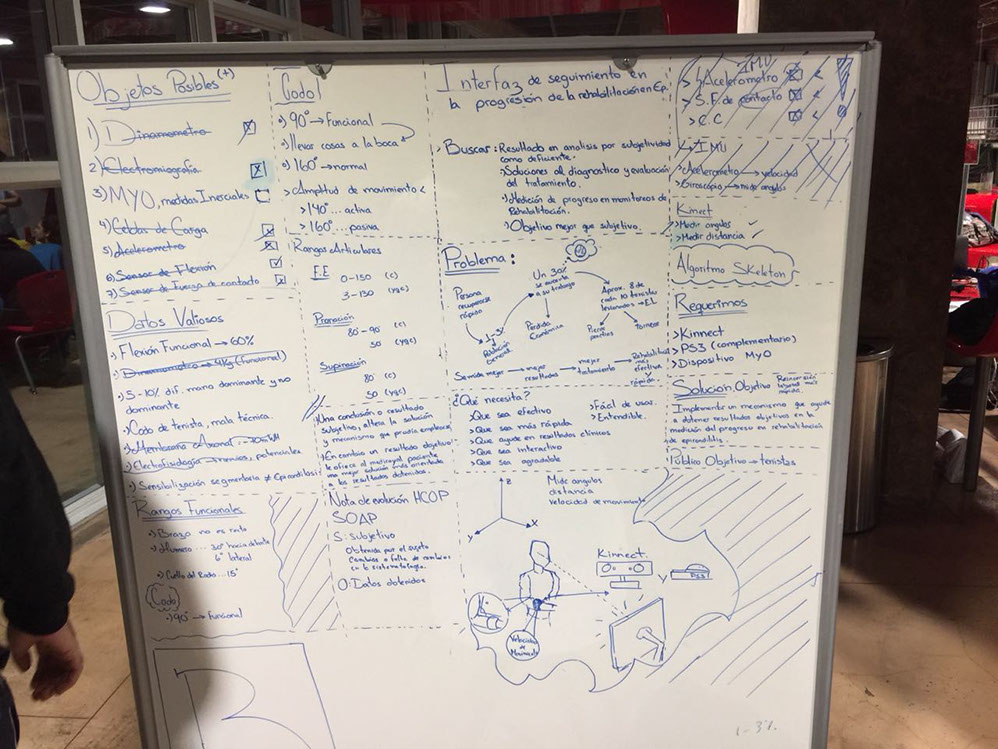 Objetos Posibles (+)
1) Dinamometro
2) Electromiografia
3) MYO, medidas Inerciales
4) Celdas de Carga
5) Acelerometro
6) Sensor de Flexión
7) Sensor de fuerza de contacto
Datos Valiosos
Flexión Funcional → 60%
Dinamometro → 4Kg (funcional)
5-10% dif. mano dominante y no
dominante
Codo de tenista, mala técnica.
Electrofisiología → nervios, potenciales
Sensibilización segmentaria ≠ Epicondilosis
Rangos Funcionales
Brazo no es recto
Humero ... 30° hacia delante
6° lateral
Cuello del Radio ... 15°
Codo
90° → funcional
Codo!
90° → Funcional
llevar cosas a la boca
160° → normal
> Amplitud de movimiento <
> 140° ... activa
> 160° ... pasiva
Rangos Articulares
F.E 0-150 (c)
3-130
Pronación
80-90 (c)
50
Supinación
80 (c)
50
Una conclusión o resultado
subjetivo, altera la solución
y mecanismo que podría emplearse
En cambio un resultado objetivo
le ofrece al paciente
una mejor solución más orientada
a los resultados obtenidos.
Nota de evolución HCOP
SOAP
S: subjetivo
Obtenida por el sujeto
Cambios o falta de cambios
en la sistematología.
O: Datos obtenidos
Interfaz de seguimiento en
la progresión de la rehabilitación en Ep.
Buscar: Resultado en analisis por subjetividad
como deficiente.
Soluciones al diagnostico y evaluación
del tratamiento.
Medición de progreso en monitoreos de
Rehabilitación.
Objetivo mejor que subjetivo.
Problema:
Persona
recuperarse
rápido
1-3%
Población
General
Un 30%
se ausenta
a su trabajo
Perdida
Económica
Aprox. 8 de
cada 10 tenistas
lesionados → E.L
Pierde
partidos
Torneos
Se mide mejor → mejor
resultados → mejor
tratamiento → Rehabilitación
más
efectiva
y
rápida
¿Qué necesita?
> Que sea efectivo
> Que sea más rápida
> Que ayude en resultados clinicos
> Que sea interactivo
> Que sea agradable
> Fácil de usar.
> Entendible.
Z
X
Y
Mide angulos
distancia
velocidad de movimiento
Kinnect.
Y
PS3
Velocidad
de
Movimiento
IMU
> Acelerometro
> S.F. de contacto
> C.C
IMU
Acelerometro → velocidad
Giroscopio → mide angulos
Kinect
> Medir angulos ✓
> Medir distancia ✓
Algoritmo Skeleton
Requerimos
> Kinnect
> PS3 (complementario)
> Dispositivo MyO
Solución Objetivo
Implementar un mecanismo que ayude
a obtener resultados objetivos en la
medición del progreso en rehabilitación
de epicondilitis.
Público Objetivo → tenistas
1-3%